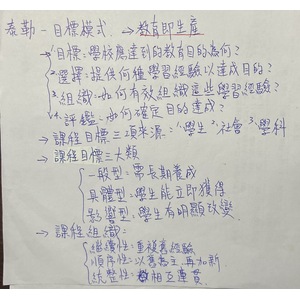 泰勒-目標模式 → 教育即生產
1.目標:學校應達到的教育目的為何?
2.選擇:提供何種學習經驗以達成目的?
3.組織:如何有效組織這些學習經驗?
4.評鑑:如何確定目的達成?
→課程目標三項來源:1.學生 2.社會 3.學科
→課程目標三大類
一般型:需長期養成
具體型:學生能立即獲得
影響型:學生有明顯改變
→課程組織:
繼續性:重複舊經驗
順序性:以舊為主,再加新
統整性:相互連貫